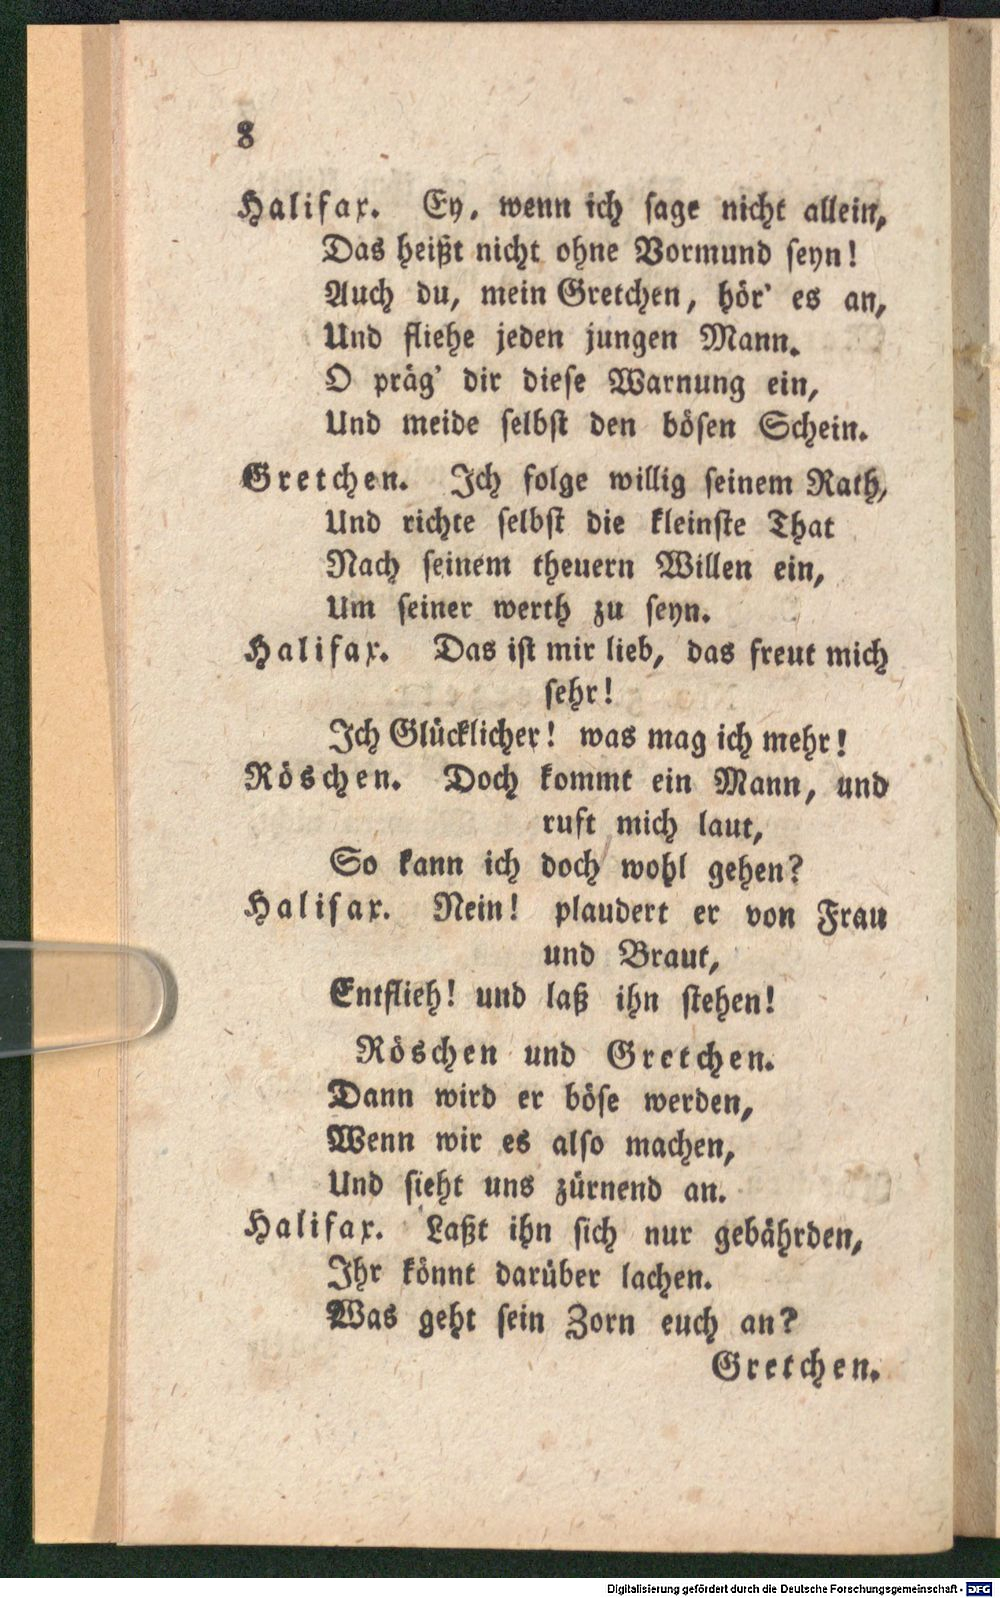 8
Halifax. Ey, wenn ich sage nicht allein,
Das heißt nicht ohne Vormund seyn!
Auch du, mein Gretchen, hör' es an,
Und fliehe jeden jungen Mann.
O präg' dir diese Warnung ein,
Und meide selbst den bösen Schein.
Gretchen. Ich folge willig seinem Rath,
Und richte selbst die kleinste That
Nach seinem theuern Willen ein,
Um seiner werth zu seyn.
Halifax. Das ist mir lieb, das freut mich
sehr!
Ich Glücklicher! was mag ich mehr!
Röschen. Doch kommt ein Mann, und
ruft mich laut,
So kann ich doch wohl gehen?
Halifax. Nein! plaudert er von Frau
und Braut,
Entflieh! und laß ihn stehen!
Röschen und Gretchen.
Dann wird er böse werden,
Wenn wir es also machen,
Und sieht uns zürnend an.
Halifax. Laßt ihn sich nur gebährden,
Ihr könnt darüber lachen.
Was geht sein Zorn euch an?
Gretchen.
Digitalisierung gefördert durch die Deutsche Forschungsgemeinschaft - DFG